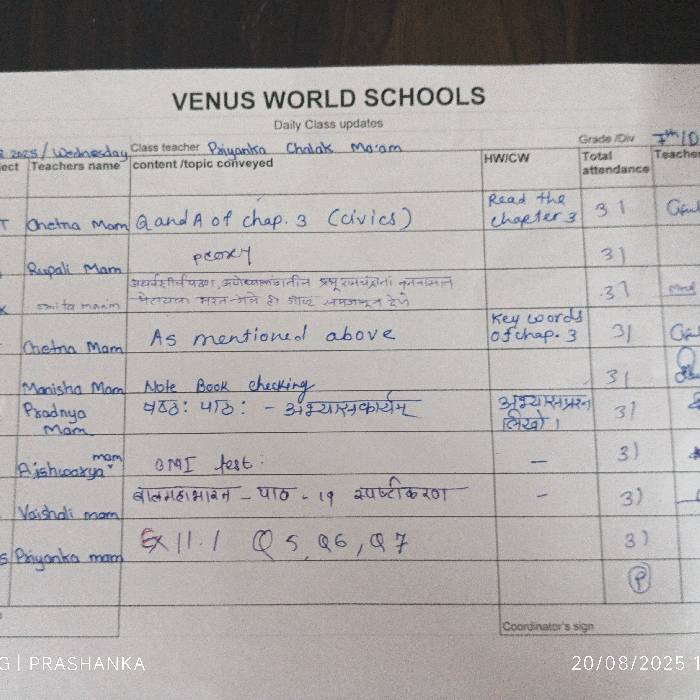 VENUS WORLD SCHOOLS
Daily Class updates
2025/Wednesday Class teacher Priyanka Chalak Ma'am Grade /Div 7th/D
ect Teachers name content /topic conveyed HW/CW Total attendance Teacher
T Chetna Mam Q and A of chap. 3 (civics) Read the chapter 3 31
Rupali Mam proxy 31
smita maam 31
Chetna Mam As mentioned above Key words of chap. 3 31
Manisha Mam Note Book checking 31
Pradnya Mam षष्ठः पाठः - अभ्यासकार्यम् अभ्यासप्रश्न लिखो। 31
Aishwarya mam BMI test: - 31
Vaishali mam बालमहाभारत - पाठ - 19 स्पष्टीकरण - 31
s Priyanka mam Ex 11.1 Q5, Q6, Q7 31
P
Coordinator's sign
G | PRASHANKA 20/08/2025 1